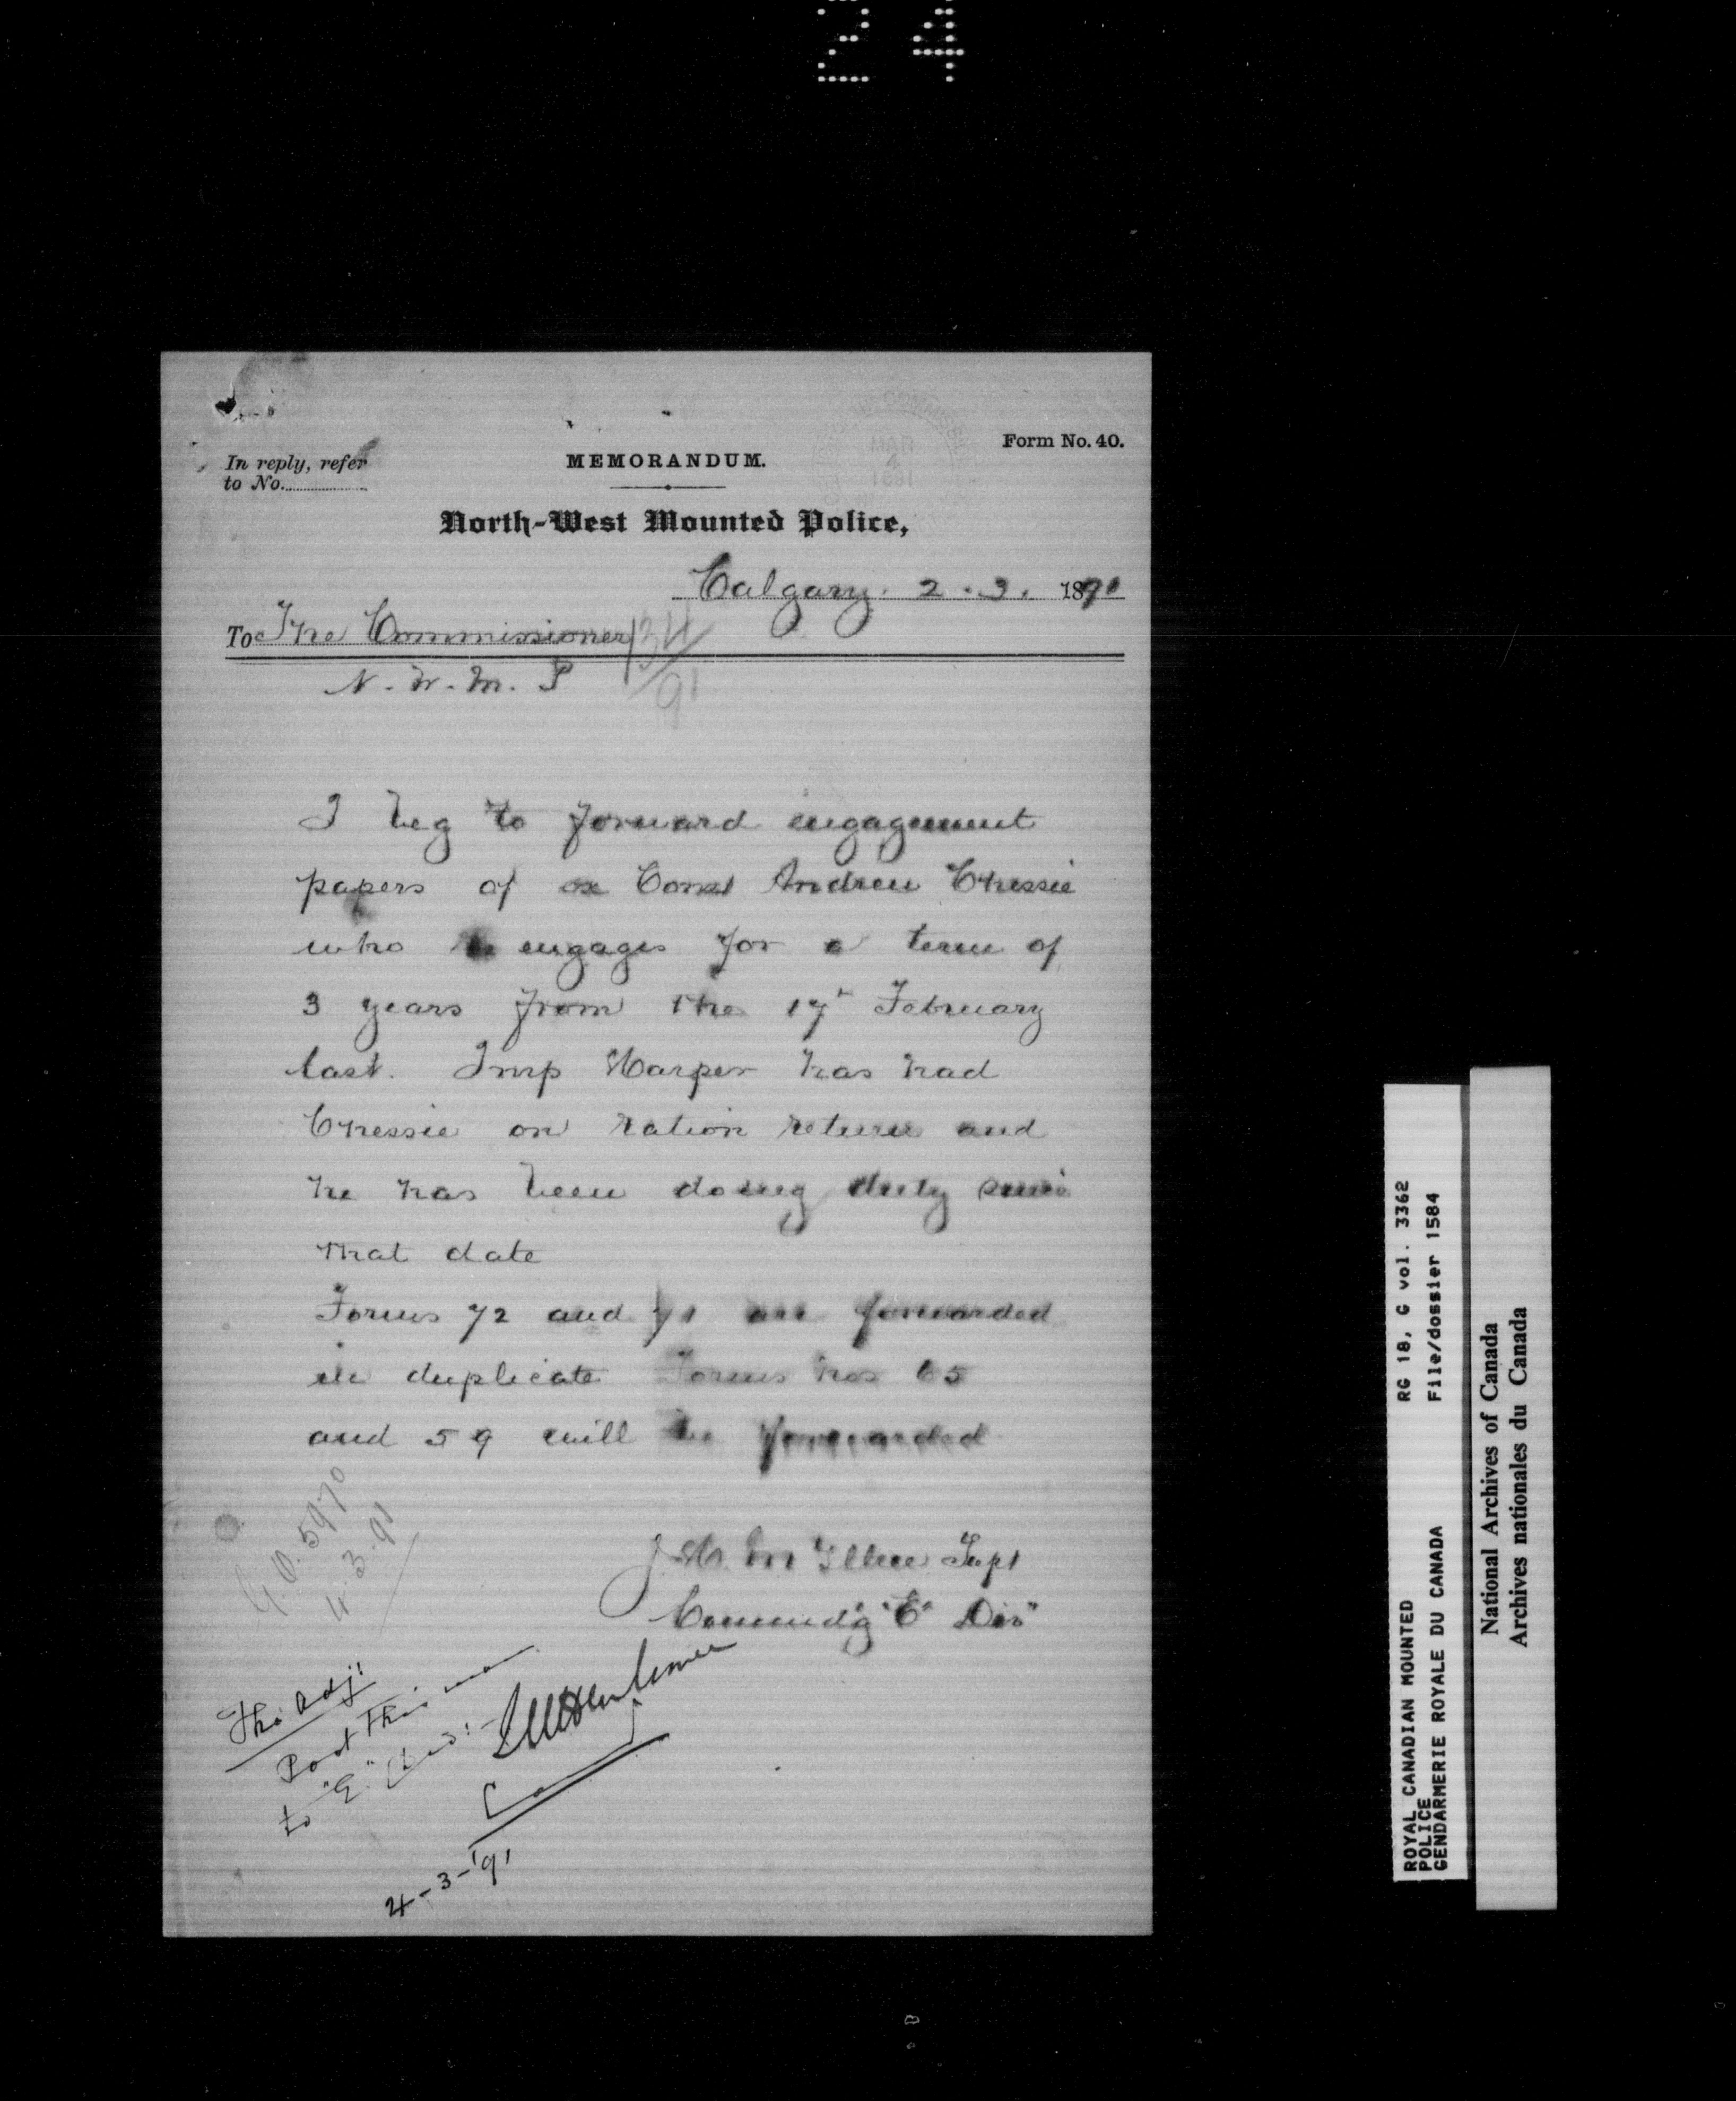 24
Form No. 40.
In reply, refer
to No.
MEMORANDUM.
North-West Mounted Police,
Calgary. 2.3. 1891
To The Commissioner
134/91
N. W. M. P
I beg to forward engagement
papers of ex Const Andrew Chessie
who engages for a term of
3 years from the 17th February
last. Insp Harper has had
Chessie on ration return and
he has been doing duty since
that date
Forms 72 and 71 are forwarded
in duplicate Forms nos 65
and 59 will be forwarded
G.O. 5970
4.3.91
J. H. McIllree Supt
Commdg "E" Div
The Adjt
Post this man
to "E"
4-3-'91
ROYAL CANADIAN MOUNTED
POLICE
GENDARMERIE ROYALE DU CANADA
RG 18, G vol. 3362
File/dossier 1584
National Archives of Canada
Archives nationales du Canada